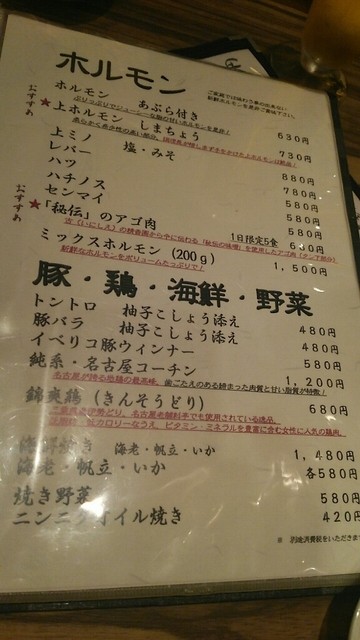 ホルモン
ご家庭では味わう事の出来ない
新鮮ホルモンを是非ご賞味下さい。
ホルモン あぶら付き 630円
ぷりっぷりでジューシーな脂の甘いホルモンを是非!
おすすめ
★上ホルモン しまちょう 730円
上ミノ 塩・みそ 880円
レバー 780円
ハツ 580円
ハチノス 580円
センマイ 580円
おすすめ
★「秘伝」のアゴ肉 1日限定5食 630円
ミックスホルモン (200g) 1,500円
新鮮なホルモンをボリュームたっぷりで!
豚・鶏・海鮮・野菜
トントロ 柚子こしょう添え 480円
豚バラ 柚子こしょう添え 480円
イベリコ豚ウィンナー 580円
純系・名古屋コーチン 1,200円
名古屋が誇る地鶏の最高峰。歯ごたえのある締まった肉質と甘い脂質が特徴!
錦爽鶏 (きんそうどり) 680円
海鮮焼き 海老・帆立・いか 1,480円
海老・帆立・いか 各580円
焼き野菜 580円
ニンニクオイル焼き 420円
※ 別途消費税をいただきま